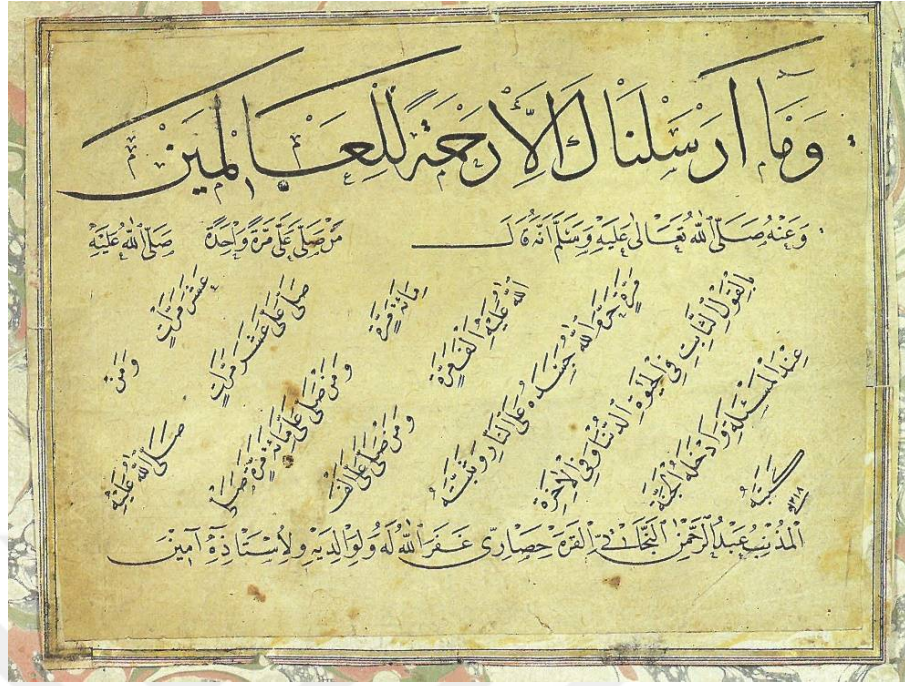 وَمَا أَرْسَلْنَاكَ إِلَّا رَحْمَةً لِلْعَالَمِينَ
وَعَنْهُ صَلَّى اللهُ تَعَالَى عَلَيْهِ وَسَلَّمَ أَنَّهُ قَالَ مَنْ صَلَّى عَلَيَّ مَرَّةً وَاحِدَةً صَلَّى اللهُ عَلَيْهِ
عَشْرَ مَرَّاتٍ وَمَنْ
صَلَّى عَلَيَّ عَشْرَ مَرَّاتٍ صَلَّى اللهُ عَلَيْهِ
مِائَةَ مَرَّةٍ وَمَنْ صَلَّى عَلَيَّ مِائَةَ مَرَّةٍ صَلَّى
اللهُ عَلَيْهِ أَلْفَ مَرَّةٍ وَمَنْ صَلَّى عَلَيَّ أَلْفَ
مَرَّةٍ حَرَّمَ اللهُ جَسَدَهُ عَلَى النَّارِ وَثَبَّتَهُ
بِالْقَوْلِ الثَّابِتِ فِي الْحَيٰوةِ الدُّنْيَا وَفِي الْآخِرَةِ
عِنْدَ الْمَسْئَلَةِ وَأَدْخَلَهُ الْجَنَّةَ
كَتَبَهُ
الْمُذْنِبُ عَبْدُ الرَّحْمٰنِ النَّجَاتِيُّ الْقَرَه حِصَارِي غَفَرَ اللهُ لَهُ وَلِوَالِدَيْهِ وَلِأُسْتَاذِهِ آمِينَ